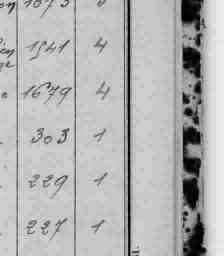 1541 4
1679 4
303 1
229 1
227 1